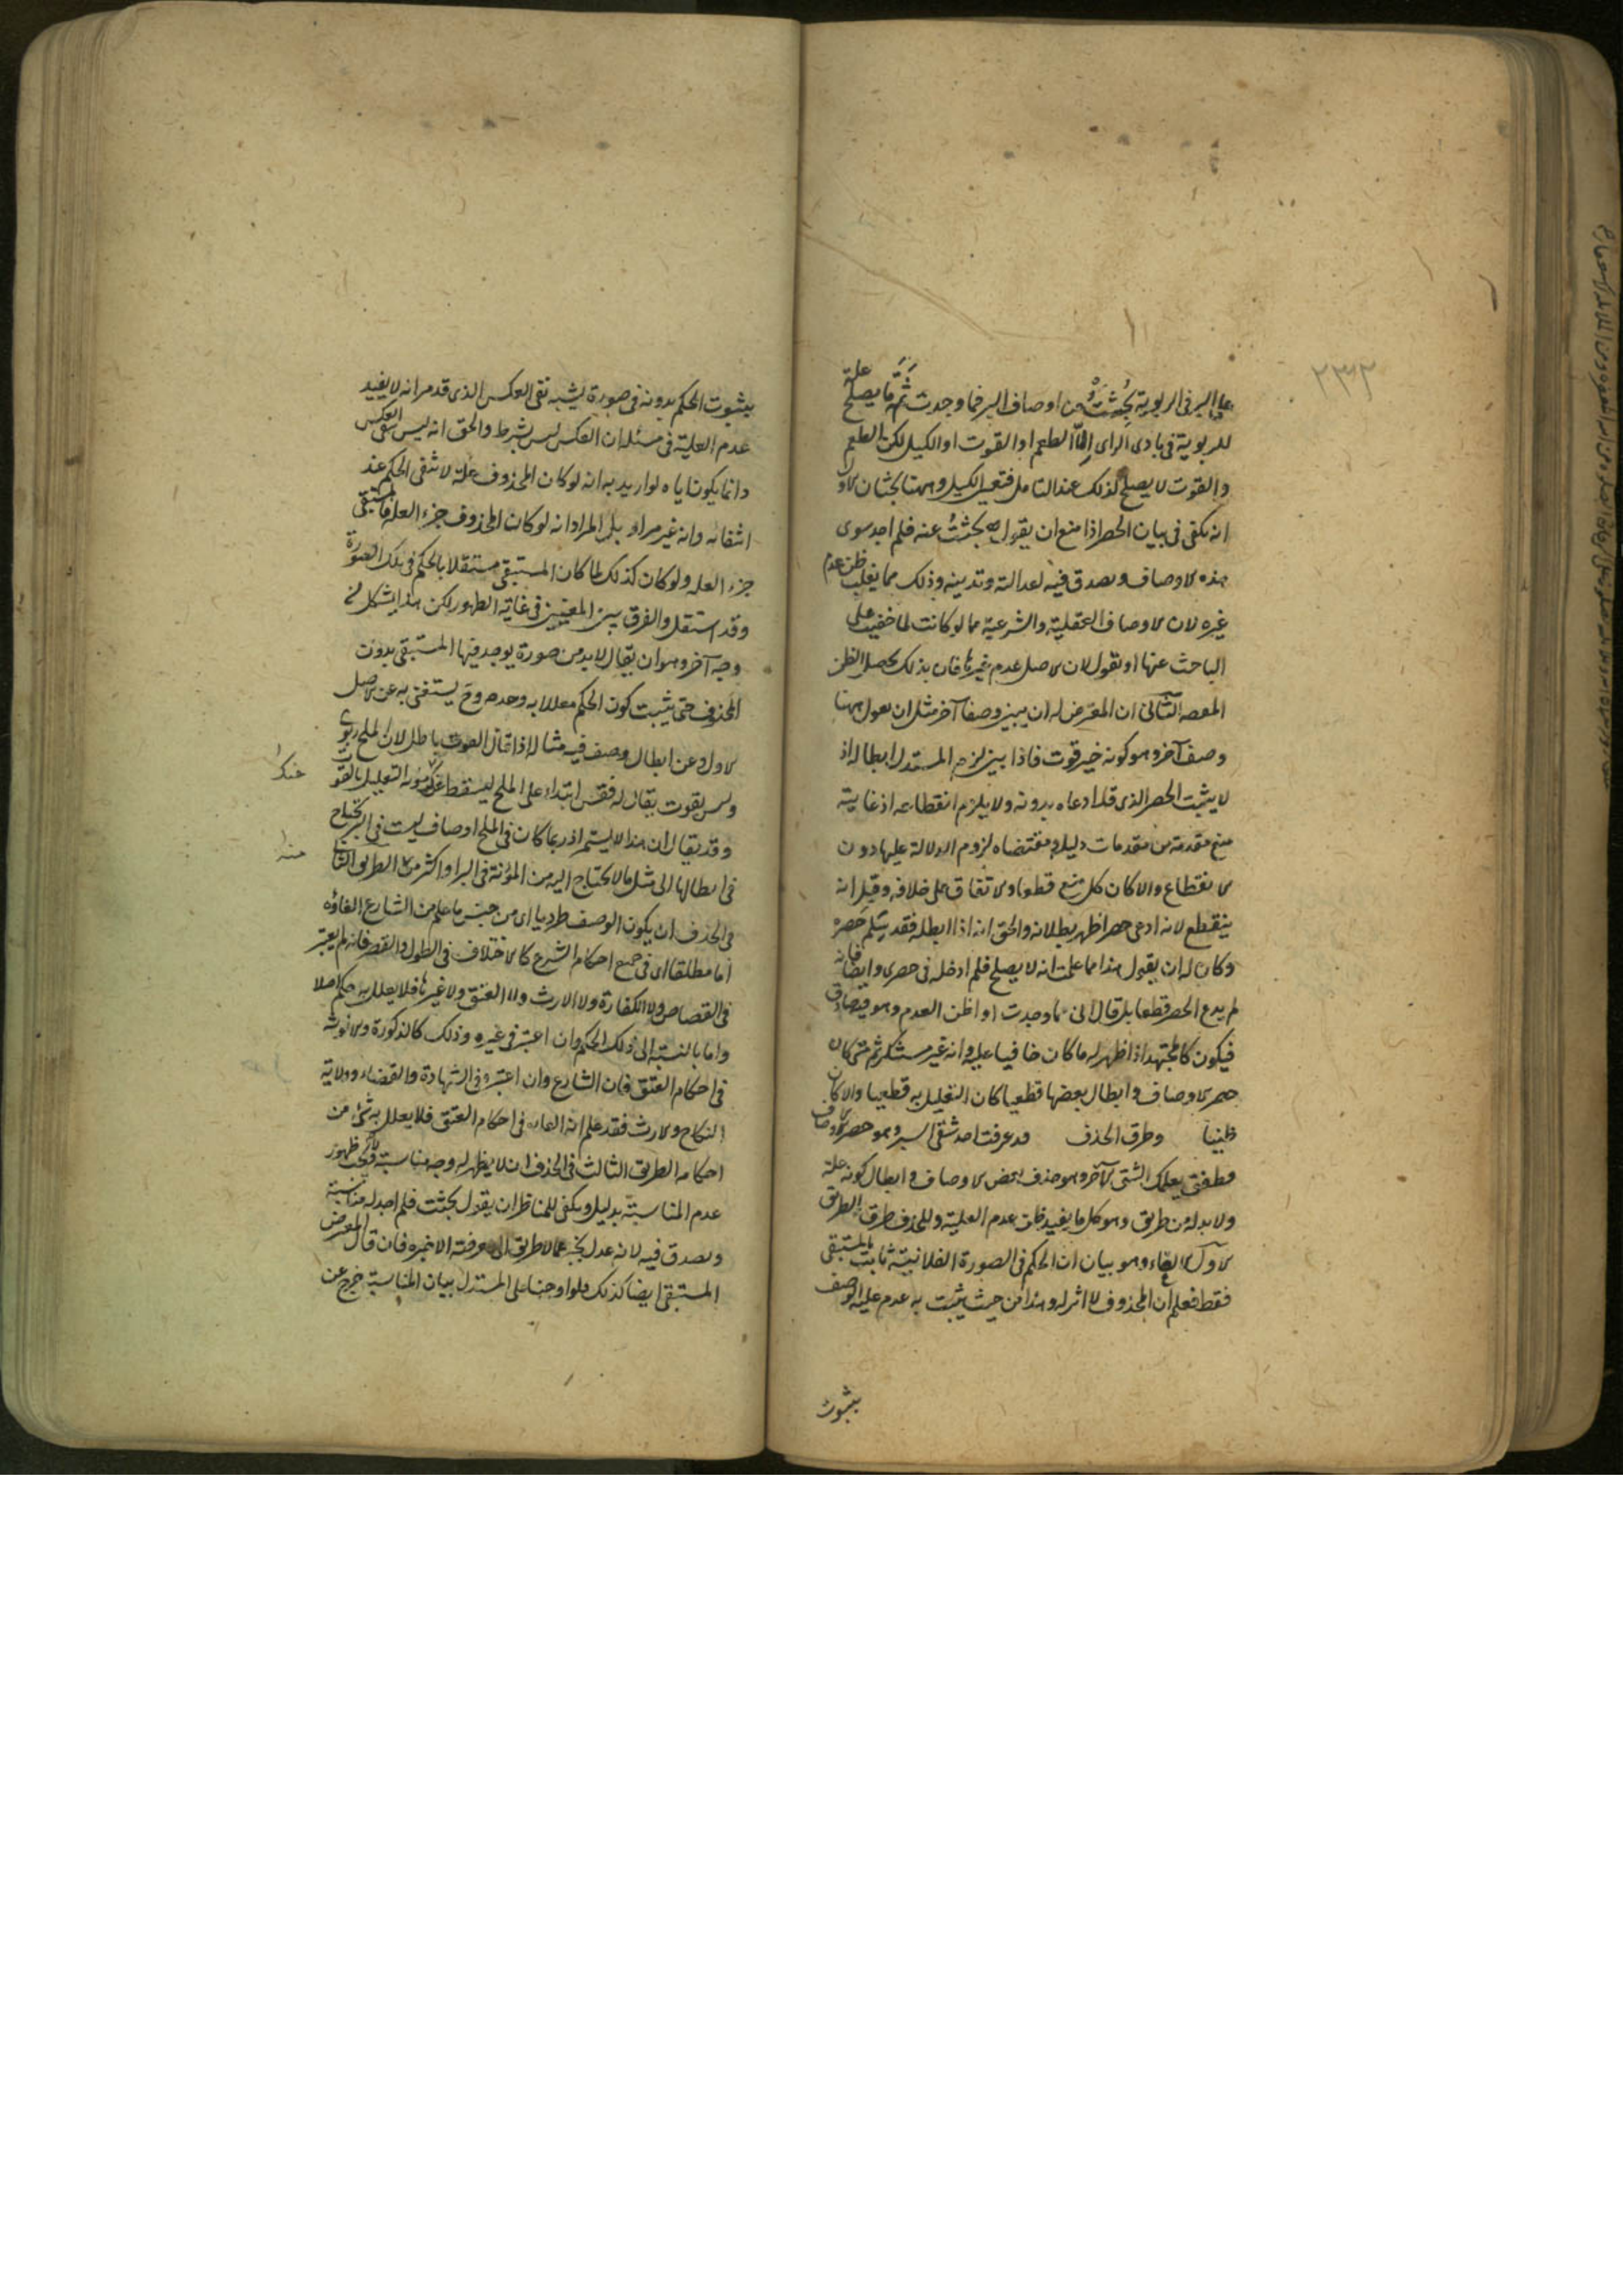 ٢٣٢
على البر فى الربوية بحثت عن اوصاف البر فما وجدت ثم ما يصلح علة
للربوية فى بادى الراى الا الطعم او القوت او الكيل لكن الطعم
والقوت لا يصلح لذلك عند التامل فتعين الكيل وههنا بحثان الاول
انه يكفى فى بيان الحصر اذا منع ان يقول بحثت عنه فلم اجد سوى
هذه الاوصاف ويصدق فيه لعدالته وتدينه وذلك مما يغلب ظن عدم
غيره لان الاوصاف العقلية والشرعية مما لو كانت لما خفيت على
الباحث عنها او نقول لان الاصل عدم غيرها فان بذلك يحصل الظن
المقصود الثانى ان المعترض له ان يبين وصفا آخر مثل ان يقول ههنا
وصف آخر وهو كونه خير قوت فاذا بين لزم المستدل ابطاله اذ
لا يثبت الحصر الذى قد ادعاه بدونه ولا يلزم انقطاعه اذ غايته
منع مقدمة من مقدمات دليله ومقتضاه لزوم الدلالة عليها دون
الانقطاع والا كان كل منع قطعا والاتفاق على خلافه وقيل انه
ينقطع لانه ادعى حصرا ظهر بطلانه والحق انه اذا ابطله فقد سلم حصره
وكان له ان يقول هذا مما علمت انه لا يصلح فلم ادخله فى حصرى وايضا فانه
لم يدع الحصر قطعا بل قال انى ما وجدت او اظن العدم وهو فيه صادق
فيكون كالمجتهد اذا ظهر له ما كان خافيا عليه وانه غير مستنكر ثم متى كان
حصر الاوصاف وابطال بعضها قطعيا كان التعليل به قطعيا والا كان
ظنيا وطرق الحذف قد عرفت احد شقى السبر وهو حصر الاوصاف
وطفق يعلمك الشق الآخر وهو حذف بعض الاوصاف وابطال كونه علة
ولا بد له من طريق وهو كل ما يفيد ظن عدم العلية وللحذف طرق الطريق
الاول الالغاء وهو بيان ان الحكم فى الصورة الفلانية ثابت بالمستبقى
فقط فعلم ان المحذوف لا اثر له وهذا من حيث يثبت به عدم علية الوصف
بثبوت
بثبوت الحكم بدونه فى صورة يشبه نفى العكس الذى قد مر انه لا يفيد
عدم العلية فى مسئلة ان العكس ليس بشرط والحق انه ليس نفى العكس
وانما يكون اياه لو اريد به انه لو كان المحذوف علة لانتفى الحكم عند
انتفائه وانه غير مراد بل المراد انه لو كان المحذوف جزء العلة فالمستبقى
جزء العلة ولو كان كذلك لما كان المستبقى مستقلا بالحكم فى تلك الصورة
وقد استقل والفرق بين المعنيين فى غاية الظهور لكن هذا يشكل من
وجه آخر وهو ان يقال لا بد من صورة يوجد فيها المستبقى بدون
المحذوف حتى يثبت كون الحكم معللا به وحده وح يستغنى به عن الاصل
الاول وعن ابطال وصف فيه مثاله اذا قال القوت باطل لان الملح ربوى
وليس بقوت يقال له فقس ابتداء على الملح ليسقط عنك مؤنة التعليل بالقوت
وقد يقال ان هذا لا يستمر اذ ربما كان فى الملح اوصاف ليست فى البر تحتاج
فى ابطالها الى مثل ما لا تحتاج اليه من المؤنة فى البر او اكثر منها الطريق الثانى
فى الحذف ان يكون الوصف طرديا اى من جنس ما علم من الشارع الغاؤه
اما مطلقا اى فى جميع احكام الشرع كالاختلاف فى الطول والقصر فانه لم يعتبر
فى القصاص ولا الكفارة ولا الارث ولا العتق ولا غيرها فلا يعلل به حكم اصلا
واما بالنسبة الى ذلك الحكم وان اعتبر فى غيره وذلك كالذكورة والانوثة
فى احكام العتق فان الشارع وان اعتبره فى الشهادة والقضاء وولاية
النكاح والارث فقد علم انه الغاه فى احكام العتق فلا يعلل به شئ من
احكامه الطريق الثالث فى الحذف ان لا يظهر له وجه مناسبة ولا يجب ظهور
عدم المناسبة بدليل ويكفى للمناظر ان يقول بحثت فلم اجد له مناسبة
ويصدق فيه لانه عدل يخبر عما لا طريق الى معرفته الا خبره فان قال المعترض
المستبقى ايضا كذلك فلو اوجبنا على المستدل بيان المناسبة خرج عن
عنك
منه